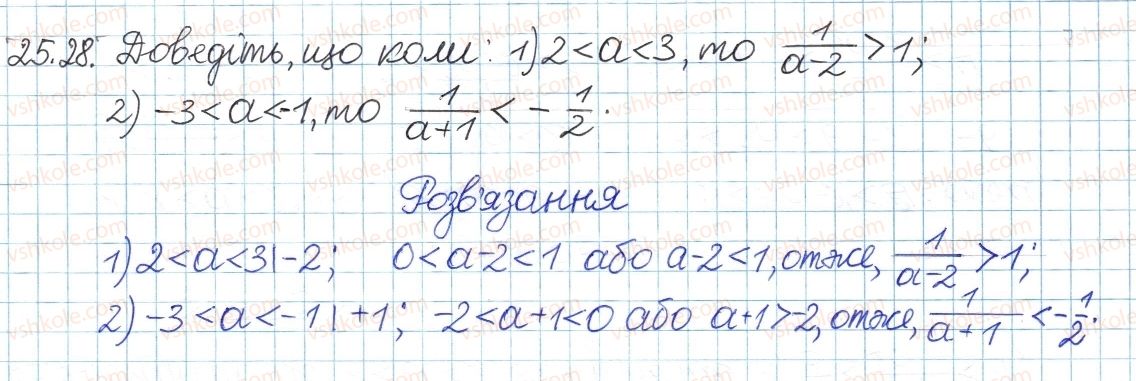 25.28. Доведіть, що коли: 1) 2 < a < 3, то 1/(a-2) > 1;
2) -3 < a < -1, то 1/(a+1) < - 1/2.
Розв'язання
1) 2 < a < 3 | -2; 0 < a-2 < 1 або a-2 < 1, отже, 1/(a-2) > 1;
2) -3 < a < -1 | +1; -2 < a+1 < 0 або a+1 > -2, отже, 1/(a+1) < - 1/2.